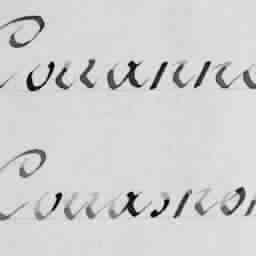 Couanne
Couasnon